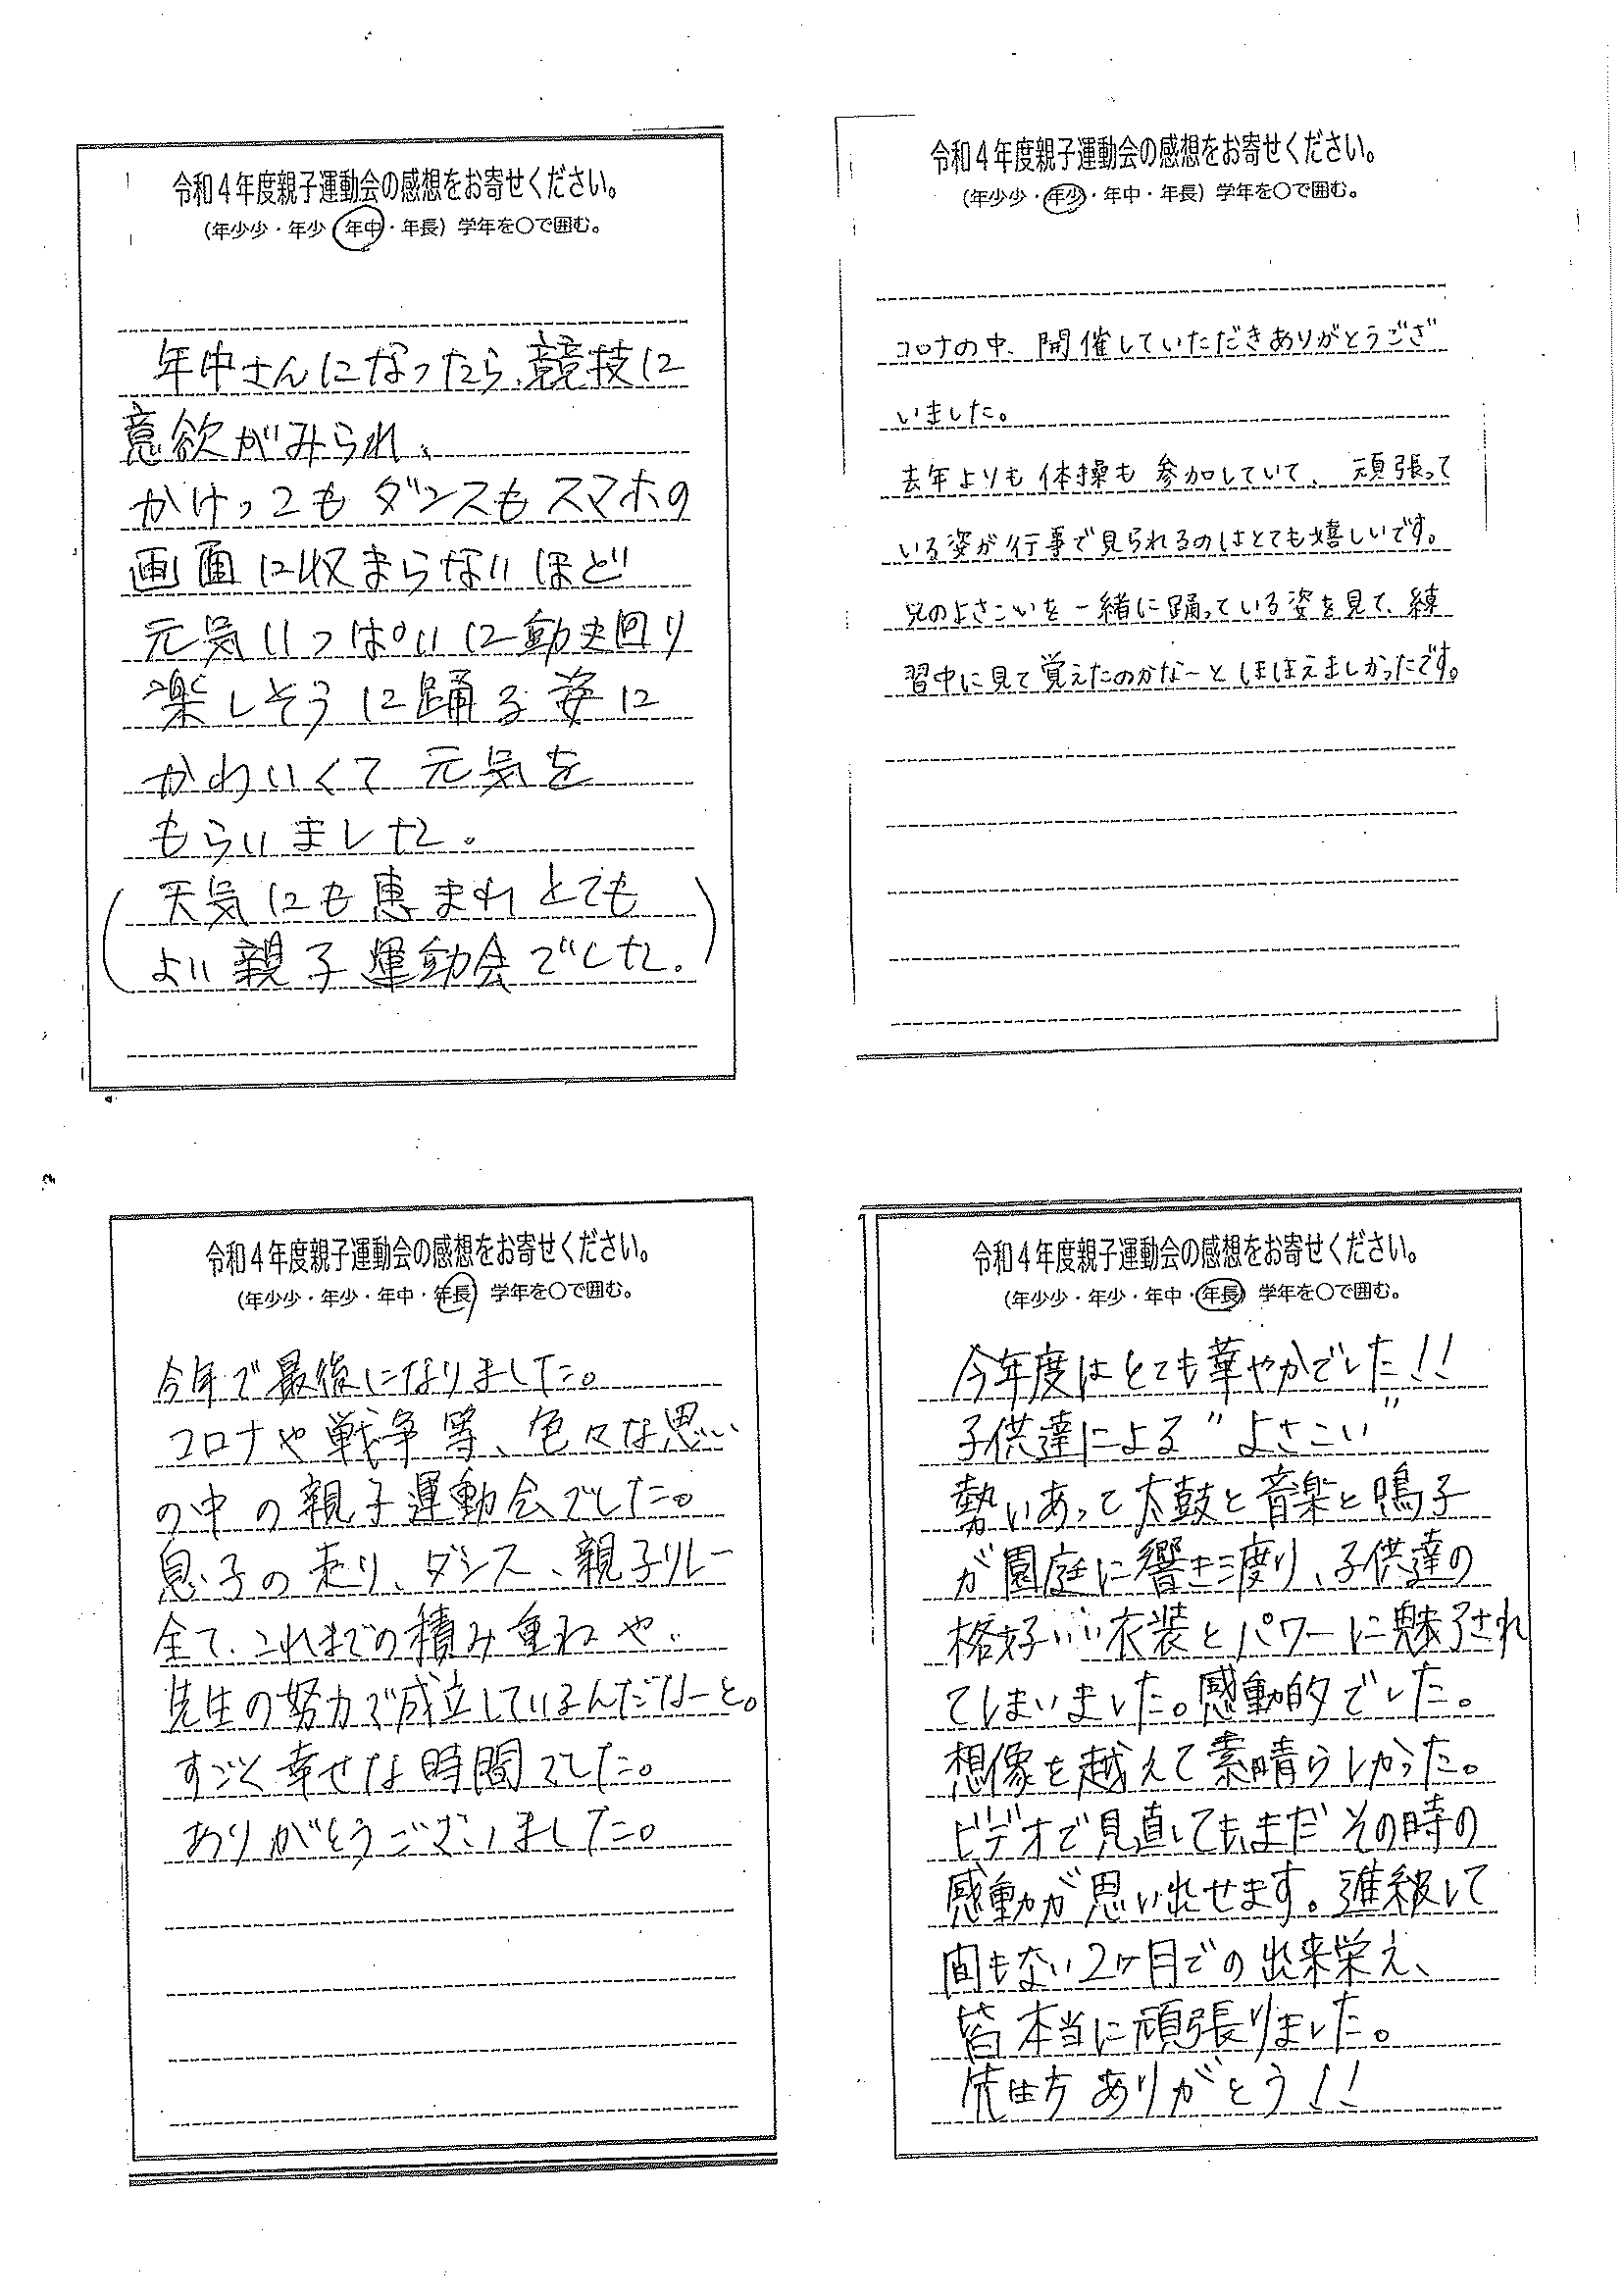 令和4年度親子運動会の感想をお寄せください。
(年少少・年少・年中・年長) 学年を〇で囲む。
年中さんになったら、競技に
意欲がみられ、
かけっこもダンスもスマホの
画面に収まらないほど
元気いっぱいに動き回り
楽しそうに踊る姿に
かわいくて元気を
もらいました。
(天気にも恵まれとても
よい親子運動会でした。)
令和4年度親子運動会の感想をお寄せください。
(年少少・年少・年中・年長) 学年を〇で囲む。
コロナの中、開催していただきありがとうござ
いました。
去年よりも体操も参加していて、頑張って
いる姿が行事で見られるのはとても嬉しいです。
兄のよさこいを一緒に踊っている姿を見て、練
習中に見て覚えたのかなーとほほえましかったです。
令和4年度親子運動会の感想をお寄せください。
(年少少・年少・年中・年長) 学年を〇で囲む。
今年で最後になりました。
コロナや戦争等、色々な思い
の中の親子運動会でした。
息子の走り、ダンス、親子リレー
全て、これまでの積み重ねや、
先生の努力で成立しているんだなーと。
すごく幸せな時間でした。
ありがとうございました。
令和4年度親子運動会の感想をお寄せください。
(年少少・年少・年中・年長) 学年を〇で囲む。
今年度はとても華やかでした!!
子供達による"よさこい"
勢いあって太鼓と音楽と鳴子
が園庭に響き渡り、子供達の
格好いい衣装とパワーに魅了され
てしまいました。感動的でした。
想像を越えて素晴らしかった。
ビデオで見直しても、まだその時の
感動が思い出せます。進級して
間もない2ヶ月での出来栄え、
皆本当に頑張りました。
先生方ありがとう!!